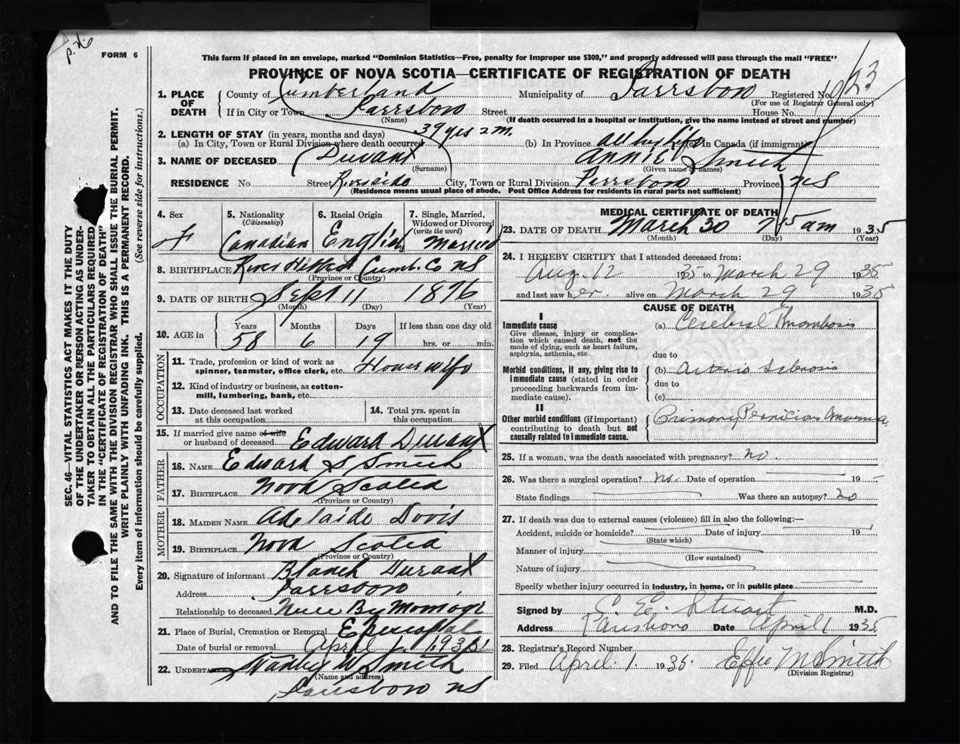 FORM 6
This form if placed in an envelope, marked "Dominion Statistics—Free, penalty for improper use $300," and properly addressed will pass through the mail "FREE"
PROVINCE OF NOVA SCOTIA—CERTIFICATE OF REGISTRATION OF DEATH
1. PLACE OF DEATH
County of Cumberland Municipality of Parrsboro Registered No. 1923
(For use of Registrar General only)
If in City or Town Parrsboro Street House No.
(Name) (If death occurred in a hospital or institution, give the name instead of street and number)
2. LENGTH OF STAY (in years, months and days)
(a) In City, Town or Rural Division where death occurred 39 yrs 2 m. (b) In Province all her life In Canada (if immigrant)
3. NAME OF DECEASED Durant Annie Smith
(Surname) (Given name or names)
RESIDENCE No. Street Riverside City, Town or Rural Division Parrsboro Province NS
(Residence means usual place of abode. Post Office Address for residents in rural parts not sufficient)
SEC. 46—VITAL STATISTICS ACT MAKES IT THE DUTY
OF THE UNDERTAKER OR PERSON ACTING AS UNDER-
TAKER TO OBTAIN ALL THE PARTICULARS REQUIRED
IN THE "CERTIFICATE OF REGISTRATION OF DEATH" AND TO FILE THE SAME WITH THE DIVISION REGISTRAR WHO SHALL ISSUE THE BURIAL PERMIT.
WRITE PLAINLY WITH UNFADING INK, THIS IS A PERMANENT RECORD.
Every item of information should be carefully supplied. (See reverse side for instructions.)
4. Sex
F
5. Nationality
(Citizenship)
Canadian
6. Racial Origin
English
7. Single, Married, Widowed or Divorced
(write the word)
Married
8. BIRTHPLACE River Hebert Cumb. Co NS
(Province or Country)
9. DATE OF BIRTH Sept 11 1876
(Month) (Day) (Year)
10. AGE in
Years Months Days If less than one day old
58 6 19 hrs. or min.
OCCUPATION
11. Trade, profession or kind of work as
spinner, teamster, office clerk, etc. House wife
12. Kind of industry or business, as cotton-
mill, lumbering, bank, etc.
13. Date deceased last worked
at this occupation
14. Total yrs. spent in
this occupation
15. If married give name of wife
or husband of deceased Edward Durant
FATHER
16. NAME Edward S Smith
17. BIRTHPLACE Nova Scotia
(Province or Country)
MOTHER
18. MAIDEN NAME Adelaide Davis
19. BIRTHPLACE Nova Scotia
(Province or Country)
20. Signature of informant Blanch Durant
Address Parrsboro
Relationship to deceased Niece By
21. Place of Burial, Cremation or Removal Episcopal
Date of burial or removal April 1 1935
22. UNDERTAKER W Smith
(Name and address)
Parrsboro NS
MEDICAL CERTIFICATE OF DEATH
23. DATE OF DEATH March 30 am 1935
(Month) (Day) (Year)
24. I HEREBY CERTIFY that I attended deceased from:
Aug. 12 to March 29 1935
and last saw her alive on March 29 1935
CAUSE OF DEATH
I
Immediate cause
Give disease, injury or complica-
tion which caused death, not the
mode of dying, such as heart failure,
asphyxia, asthenia, etc
(a) Cerebral Thrombosis
due to
Morbid conditions, if any, giving rise to
immediate cause (stated in order
proceeding backwards from im-
mediate cause).
(b) Arterio Sclerosis
due to
(c)
II
Other morbid conditions (if important)
contributing to death but not
causally related to immediate cause.
Primary Pernicious Anaemia
25. If a woman, was the death associated with pregnancy? no.
26. Was there a surgical operation? no. Date of operation 19
State findings Was there an autopsy? no
27. If death was due to external causes (violence) fill in also the following:—
Accident, suicide or homicide? Date of injury 19
(State which)
Manner of injury
(How sustained)
Nature of injury
Specify whether injury occurred in industry, in home, or in public place
Signed by C. E. Stuart M.D.
Address Parrsboro Date April 1 1935
28. Registrar's Record Number
29. Filed April 1. 1935. Effie M Smith
(Division Registrar)